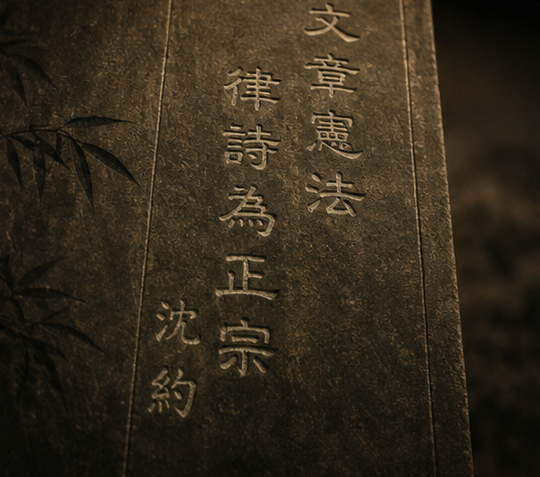 文章憲法
律詩為正宗
沈約